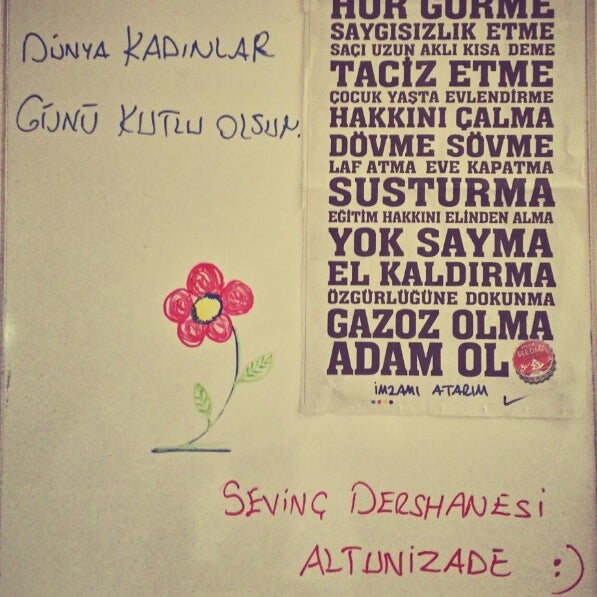 DÜNYA KADINLAR
GÜNÜ KUTLU OLSUN.
HOR GÖRME
SAYGISIZLIK ETME
SAÇI UZUN AKLI KISA DEME
TACİZ ETME
ÇOCUK YAŞTA EVLENDİRME
HAKKINI ÇALMA
DÖVME SÖVME
LAF ATMA EVE KAPATMA
SUSTURMA
EĞİTİM HAKKINI ELİNDEN ALMA
YOK SAYMA
EL KALDIRMA
ÖZGÜRLÜĞÜNE DOKUNMA
GAZOZ OLMA
ADAM OL
ULUDAĞ
İMZAMI ATARIM
SEVİNÇ DERSHANESİ
ALTUNİZADE :)